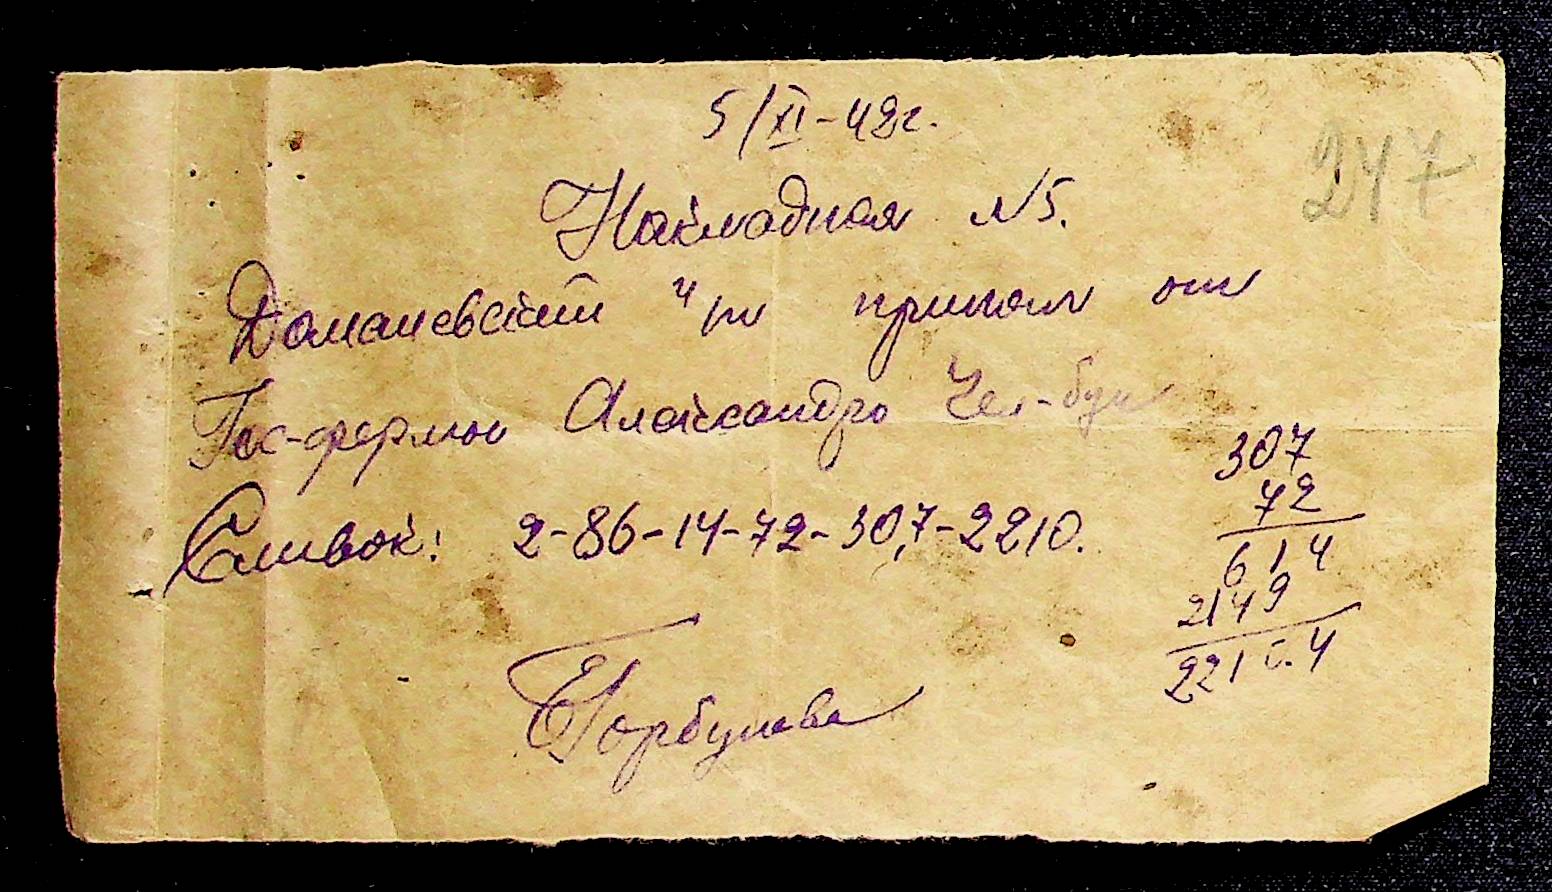 5/XI-42г.
247
Накладная №5.
Доманевский ч/п принял от
Гос-фермы Александро
Сливок: 2-86-14-72-30,7-2210.
307
72
614
2149
221 4
Горбунова